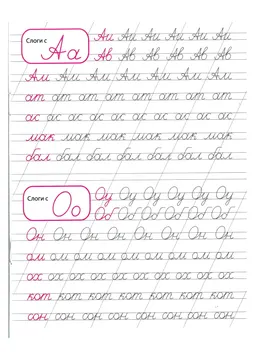 Слоги с Аа
Аи Аи Аи Аи Аи Аи Аи
Ав Ав Ав Ав Ав Ав Ав
Ам Ам Ам Ам Ам Ам Ам Ам
ат ат ат ат ат ат ат ат
ас ас ас ас ас ас ас ас
мак мак мак мак мак мак мак
бал бал бал бал бал бал бал
Слоги с Оо
Оу Оу Оу Оу Оу Оу
Об Об Об Об Об Об
Он Он Он Он Он Он Он Он
ом ом ом ом ом ом ом ом ом
ох ох ох ох ох ох ох ох ох
кот кот кот кот кот кот кот
сон сон сон сон сон сон сон